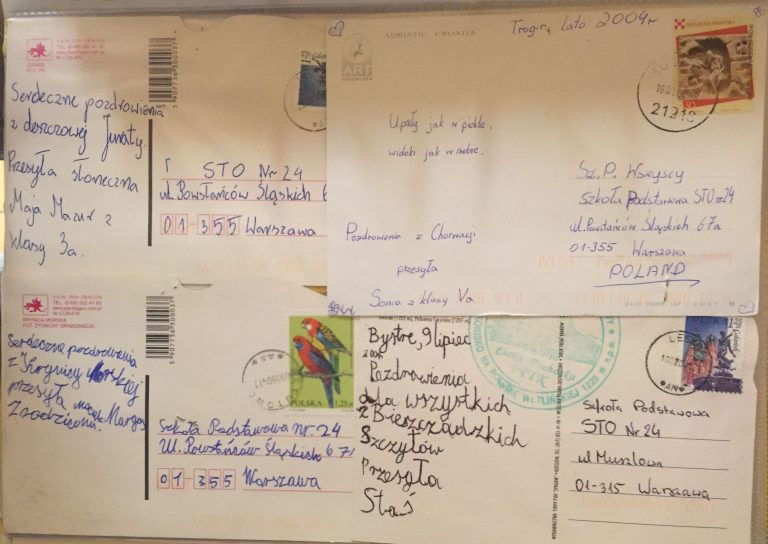 Serdeczne pozdrowienia
z deszczowej Juraty.
Przesyła słoneczna
Maja Mazur z
klasy 3a.
JURATA
5907736300037
STO Nr 24
ul. Powstańców Śląskich 6
01-355 Warszawa
Trogir, lato 2009r
ADRIATIC CROATIA
ART
21218
Upały jak w piekle,
widoki jak w niebie.
Pozdrowienia z Chorwacji
przesyła
Sonia z klasy Va
Sz. P. Wszyscy
Szkoła Podstawowa STO nr 24
ul. Powstańców Śląskich 67a
01-355 Warszawa
POLAND
KRYNICA MORSKA
FOT. ZYGMUNT GRABOWIECKI
Serdeczne pozdrowienia
z Krynicy Morskiej
przesyła
Z rodzicami
POLSKA 1,25 zł
Szkoła Podstawowa nr. 24
Ul. Powstańców Śląskich 67
01-355 Warszawa
Bystre, 9 lipiec
Pozdrowienia
dla wszystkich
z Bieszczadzkich
Szczytów
Przesyła
Staś
PTTK
NA POŁONINIE WETLIŃSKIEJ 1228 m n.p.m.
POLSKA
Szkoła Podstawowa
STO Nr 24
ul Muszlowa
01-315 Warszawa